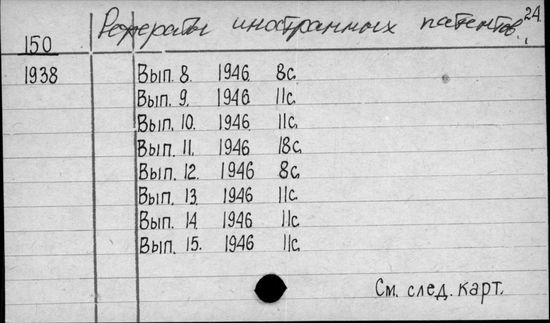 24.
Рефераты иностранных патентов.
150
1938 Вып. 8. 1946 8с.
Вып. 9. 1946 11с.
Вып. 10. 1946 11с.
Вып. 11. 1946 18с.
Вып. 12. 1946 8с.
Вып. 13. 1946 11с.
Вып. 14 1946 11с.
Вып. 15. 1946 11с.
См. след. карт.